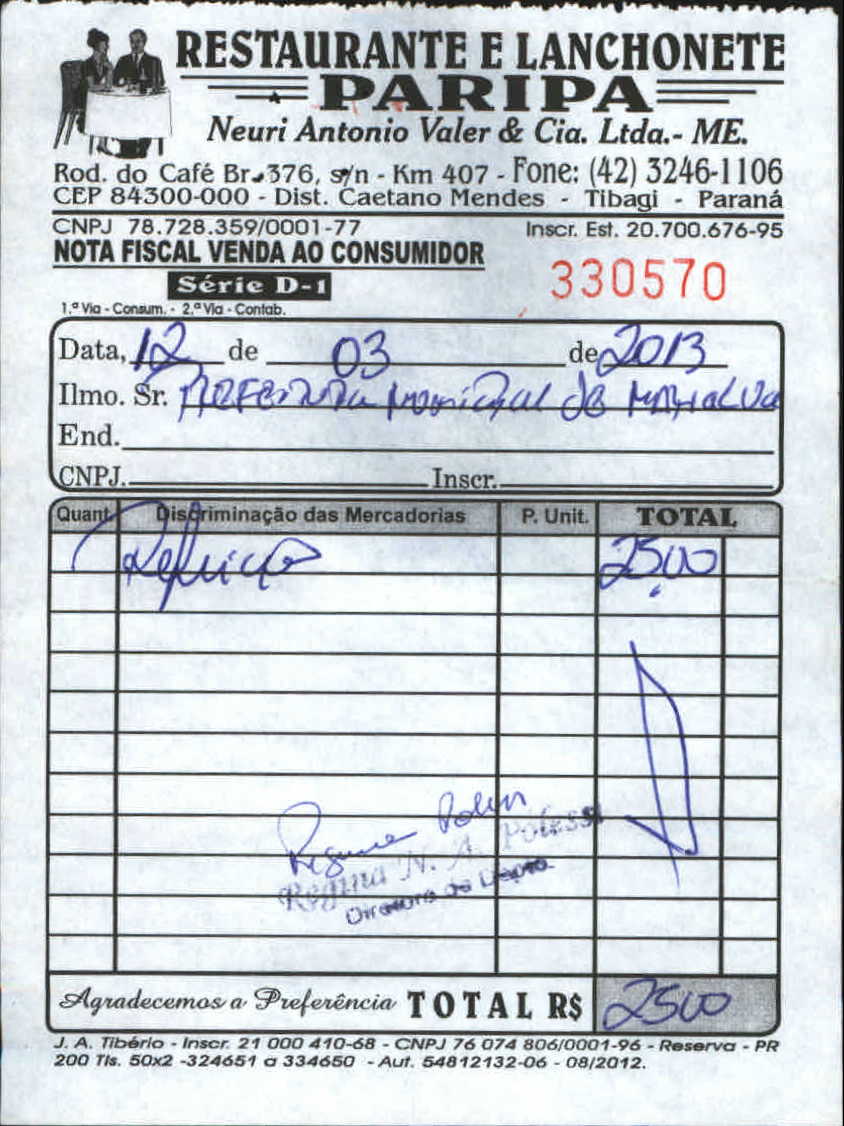 RESTAURANTE E LANCHONETE
PARIPA
Neuri Antonio Valer & Cia. Ltda.- ME.
Rod. do Café Br. 376, s/n - Km 407 - Fone: (42) 3246-1106
CEP 84300-000 - Dist. Caetano Mendes - Tibagi - Paraná
CNPJ 78.728.359/0001-77 Inscr. Est. 20.700.676-95
NOTA FISCAL VENDA AO CONSUMIDOR
Série D-1 330570
1.ª Via - Consum. - 2.ª Via - Contab.
Data, 12 de 03 de 2013
Ilmo. Sr. Prefeitura Municipal de Marialva
End.
CNPJ. Inscr.
Quant. Discriminação das Mercadorias P. Unit. TOTAL
Refeição 25,00
Regina N. A. Polessi
Diretora de Depto.
Agradecemos a Preferência TOTAL R$ 2500
J. A. Tibério - Inscr. 21 000 410-68 - CNPJ 76 074 806/0001-96 - Reserva - PR
200 Tls. 50x2 -324651 a 334650 - Aut. 54812132-06 - 08/2012.